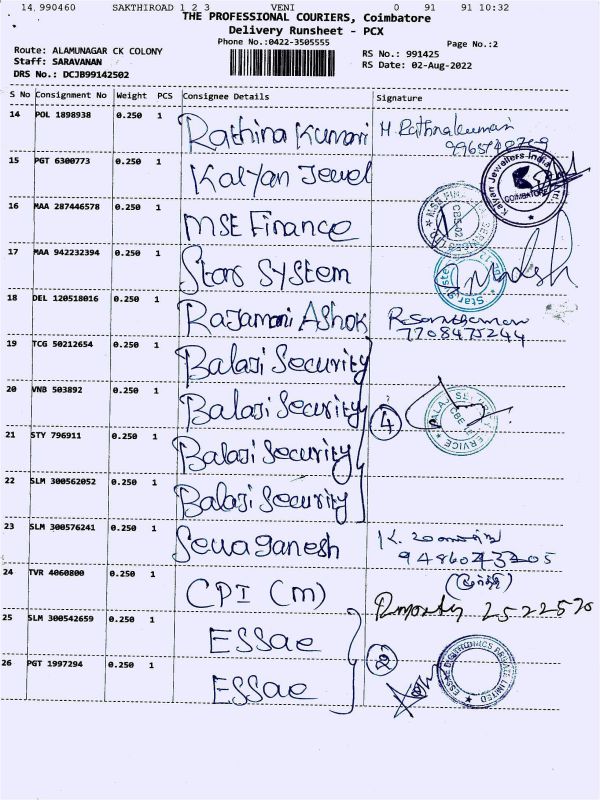 14.990460 SAKTHIROAD 1 2 3 VENI 0 91 91 10:32
THE PROFESSIONAL COURIERS, Coimbatore
Delivery Runsheet - PCX
Phone No.:0422-3505555
Page No.:2
Route: ALAMUNAGAR CK COLONY
RS No.: 991425
Staff: SARAVANAN
RS Date: 02-Aug-2022
DRS No.: DCJB99142502
S No Consignment No Weight PCS Consignee Details Signature
14 POL 1898938 0.250 1 Rathina Kumari M. Rathnakumari
15 PGT 6300773 0.250 1 Kalyan Jewel Kalyan Jewellers India COIMBATORE
16 MAA 287446578 0.250 1 MSE Finance
17 MAA 942232394 0.250 1 Stars System
18 DEL 120518016 0.250 1 Rajamani Ashok
7708475244
19 TCG 50212654 0.250 1 Balaji Security
20 VNB 503892 0.250 1 Balaji Security 4
21 STY 796911 0.250 1 Balaji Security
22 SLM 300562052 0.250 1 Balaji Security
23 SLM 300576241 0.250 1 Sewaganesh
24 TVR 4060800 0.250 1 CPI (m) 2522520
25 SLM 300542659 0.250 1 ESSae
26 PGT 1997294 0.250 1 ESSae ESSAE DIGITRONICS PRIVATE LIMITED